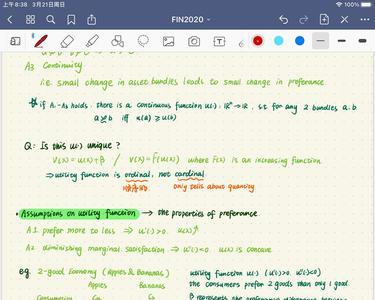 上午8:38 3月21日周日
100%
FIN2020
A3. Continuity
i.e. small change in asset bundles leads to small change in preferance.
if A1-A3 holds, there is a continuous function u(·): ℝⁿ→ℝ, s.t. for any 2 bundles a, b
a ≿ b iff u(a) ≥ u(b)
Q: Is this u(·) unique?
V(x) = u(x)+β / V(x) = f(u(x)) where f(x) is an increasing function
⇒ utility function is ordinal, not cardinal.
Only tells about quantity
• Assumptions on utility function → the properties of preferance.
A1. prefer more to less ⇒ u'(·)>0. u(x)↑
A2. diminishing marginal satisfaction ⇒ u''(·)<0 u(x) is concave
eg. 2-good Economy (Apples & Bananas)
utility function u(·) (u'(·)>0, u''(·)<0)
Apples Bananas
the consumers prefer 2 goods than only 1 good.
Consumption Ca Cb
β represents the preference difference between